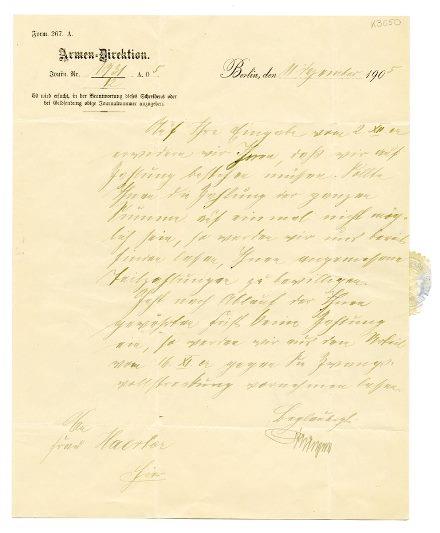 K3050
Form. 267. A.
Armen-Direktion.
Journ. Nr. A. 05.
Es wird ersucht, in der Beantwortung dieses Schreibens oder
bei Geldsendung obige Journalnummer anzugeben.
Berlin, den 11. 1905
Auf Ihre Eingabe vom 2 XII cr
erwidern wir Ihnen, daß wir auf
Zahlung bestehen müssen. Sollte
Ihnen die Zahlung der ganzen
Summe auf einmal nicht mög-
lich sein, so werden wir uns bereit
finden lassen, Ihnen angemessene
Teilzahlungen zu bewilligen.
Geht nach Ablauf der Ihnen
gewährten Frist keine Zahlung
ein, so werden wir aus dem Urteil
vom 16 XI cr gegen Sie Zwangs-
vollstreckung vornehmen lassen.
Beglaubigt.
An
Frau
Hier